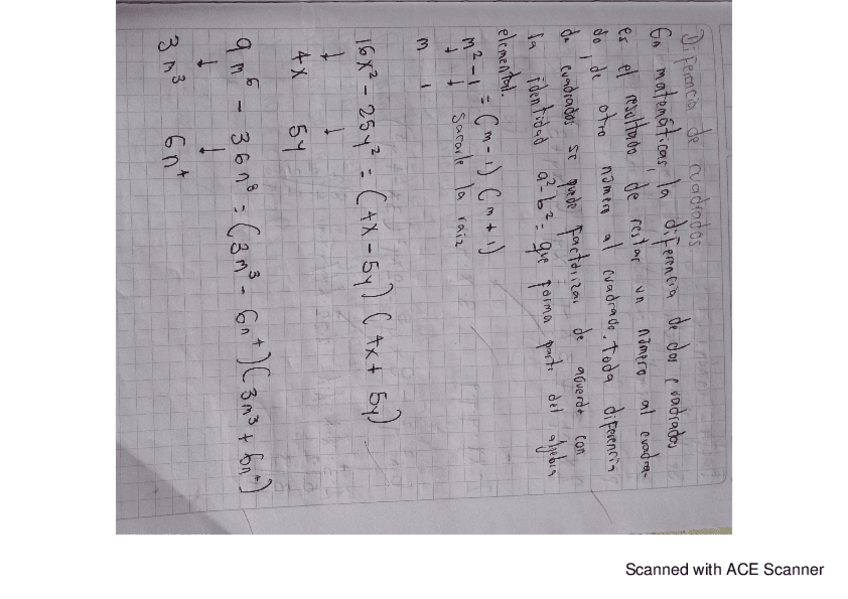 Diferencia de cuadrados
En matemáticas, la diferencia de dos cuadrados
es el resultado de restar un número al cuadra-
do, de otro número al cuadrado. toda diferencia
de cuadrados se puede factorizar de acuerdo con
la identidad a²-b²= que forma parte del algebra
elemental.
m²-1 = (m-1) (m+1)
↓ ↓ Sacarle la raiz
m 1
16x² - 25y² = (4x - 5y) (4x + 5y)
↓ ↓
4x 5y
9m⁶ - 36n⁸ = (3m³ - 6n⁴) (3m³ + 6n⁴)
↓ ↓
3m³ 6n⁴
Scanned with ACE Scanner